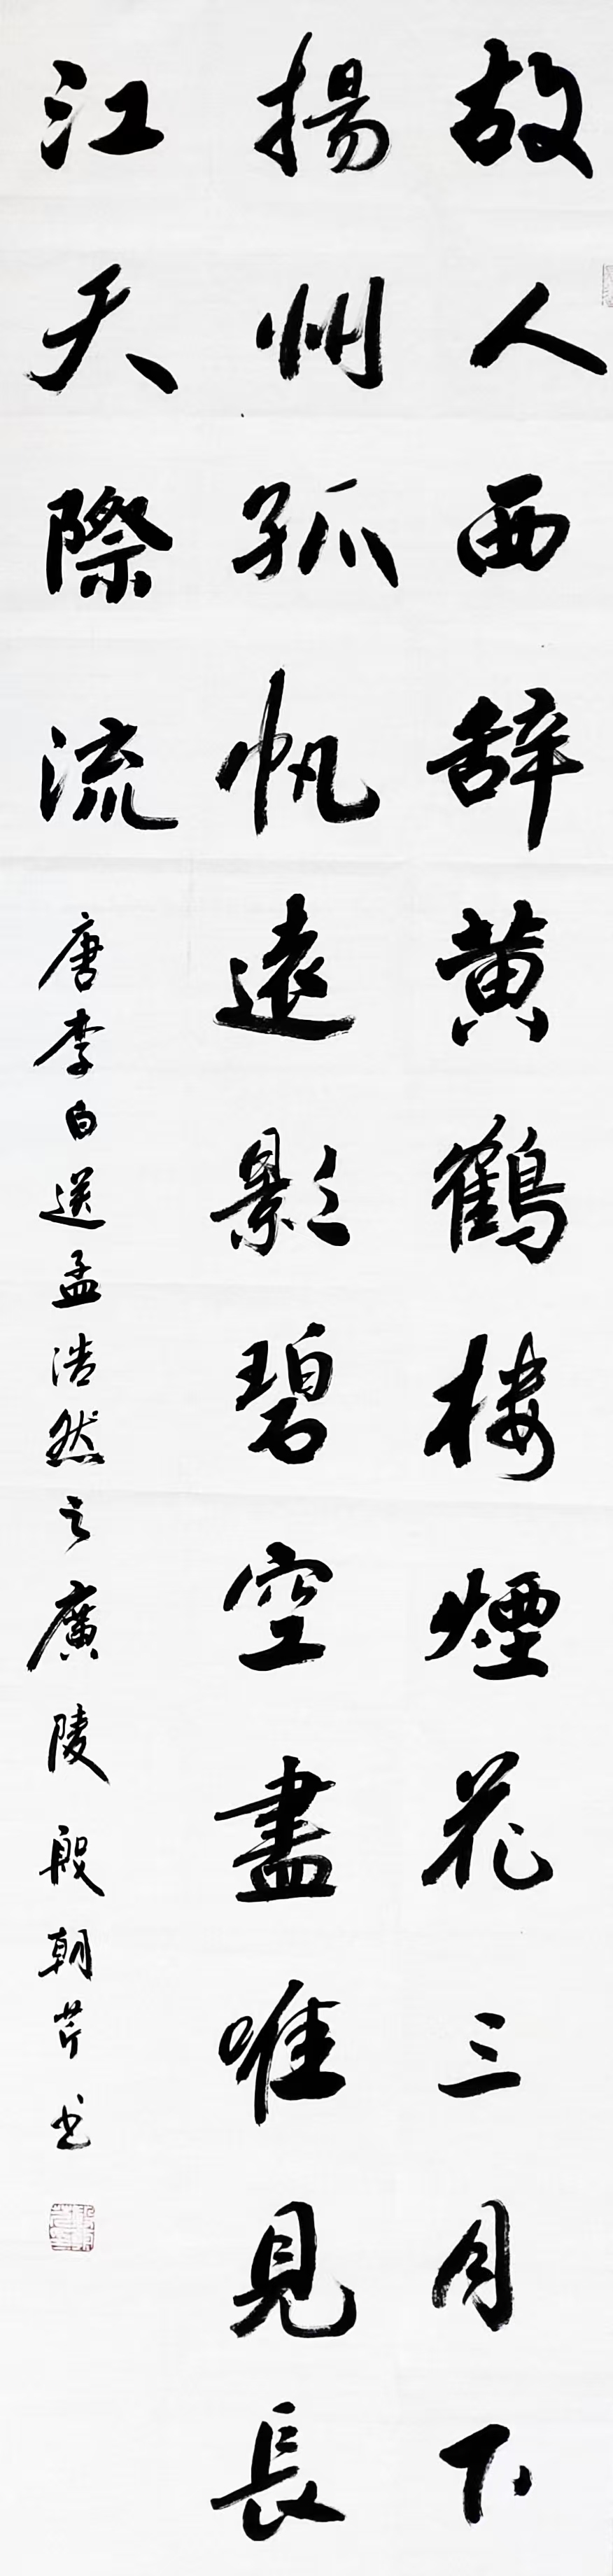 故人西辞黄鹤楼煙花三月下
揚州孤帆遠影碧空盡唯見長
江天際流
唐李白送孟浩然之廣陵 殷朝芹书